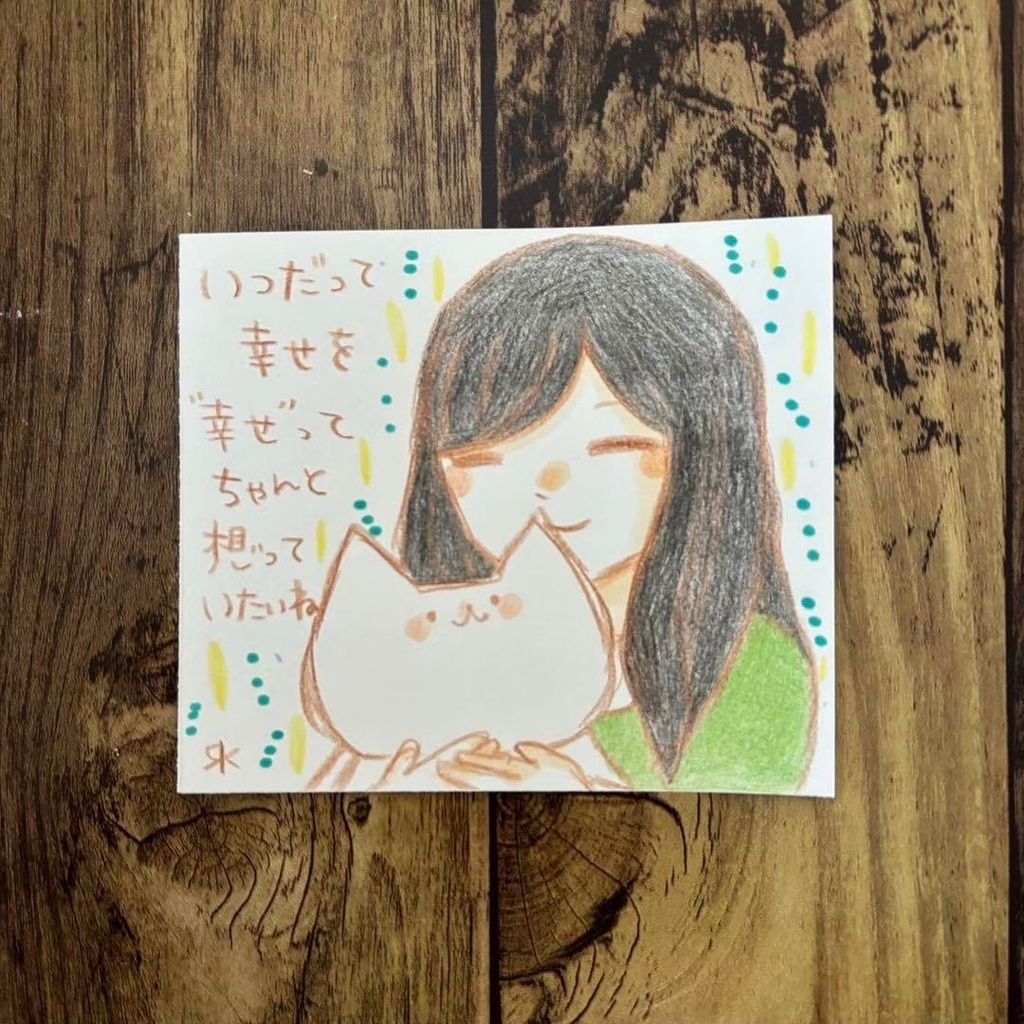 いつだって
幸せを
"幸せ"って
ちゃんと
想って
いたいね